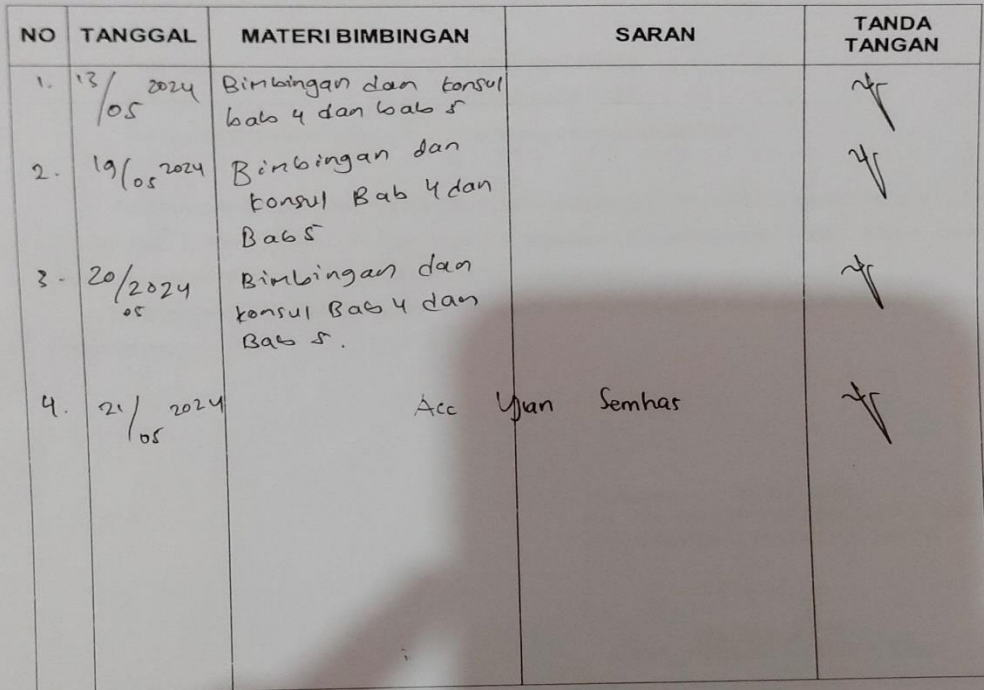 NO TANGGAL MATERI BIMBINGAN SARAN TANDA TANGAN
1. 13/05 2024 Bimbingan dan konsul
bab 4 dan bab 5
2. 19/05 2024 Bimbingan dan
konsul Bab 4 dan
Bab 5
3. 20/05/2024 Bimbingan dan
konsul Bab 4 dan
Bab 5.
4. 21/05 2024 Acc Ujian Semhas